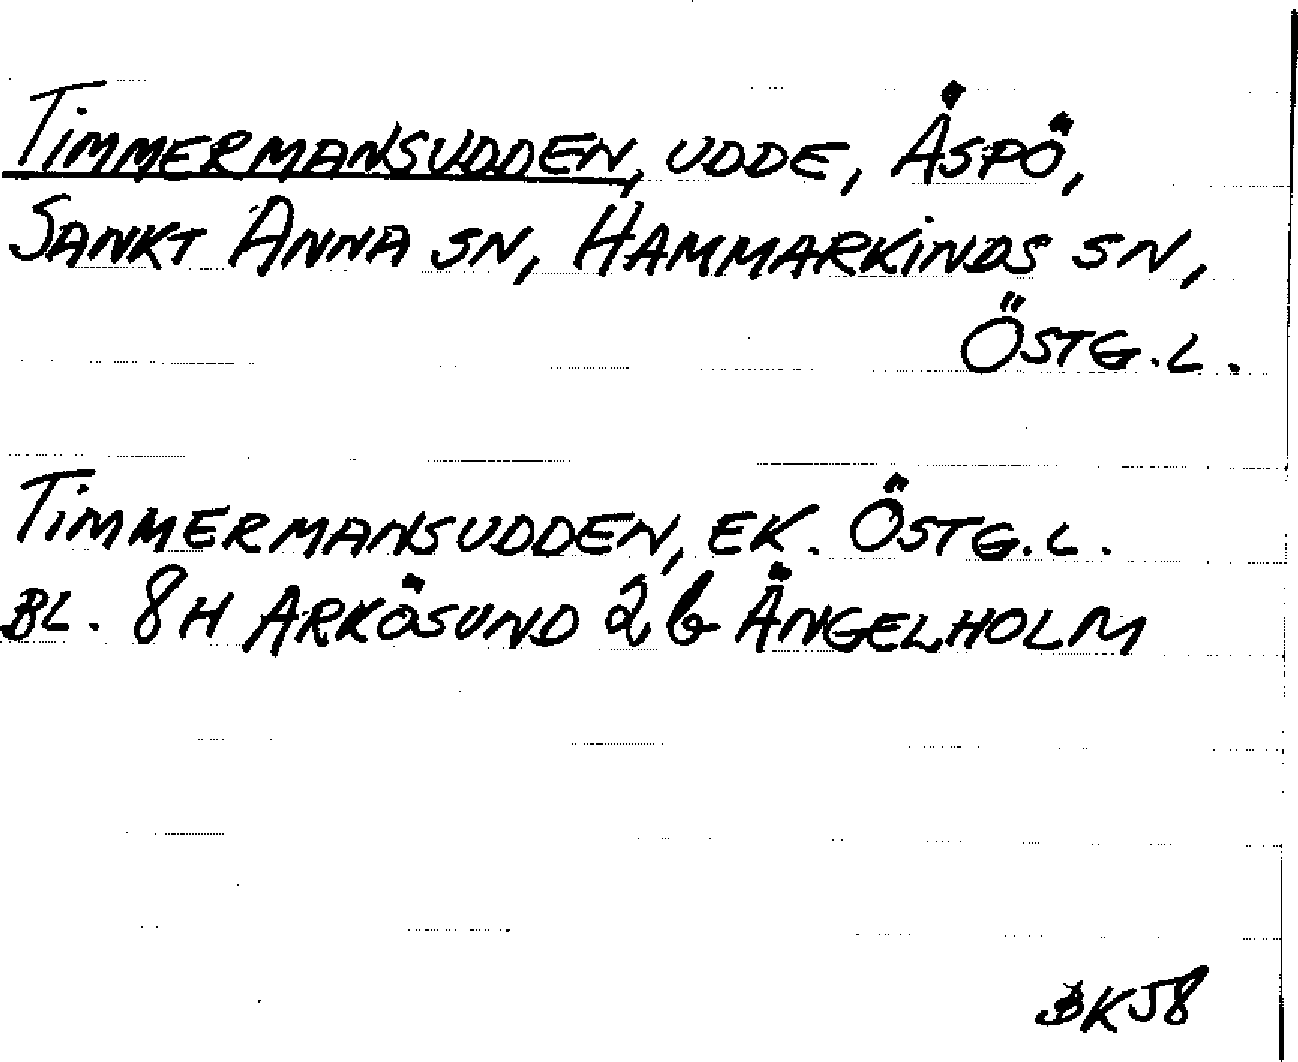 TIMMERMANSUDDEN, UDDE, ÅSPÖ,
SANKT ANNA SN, HAMMARKINDS SN,
ÖSTG.L.
TIMMERMANSUDDEN, EK. ÖSTG.L.
BL. 8H ARKÖSUND 2b ÄNGELHOLM
BK58